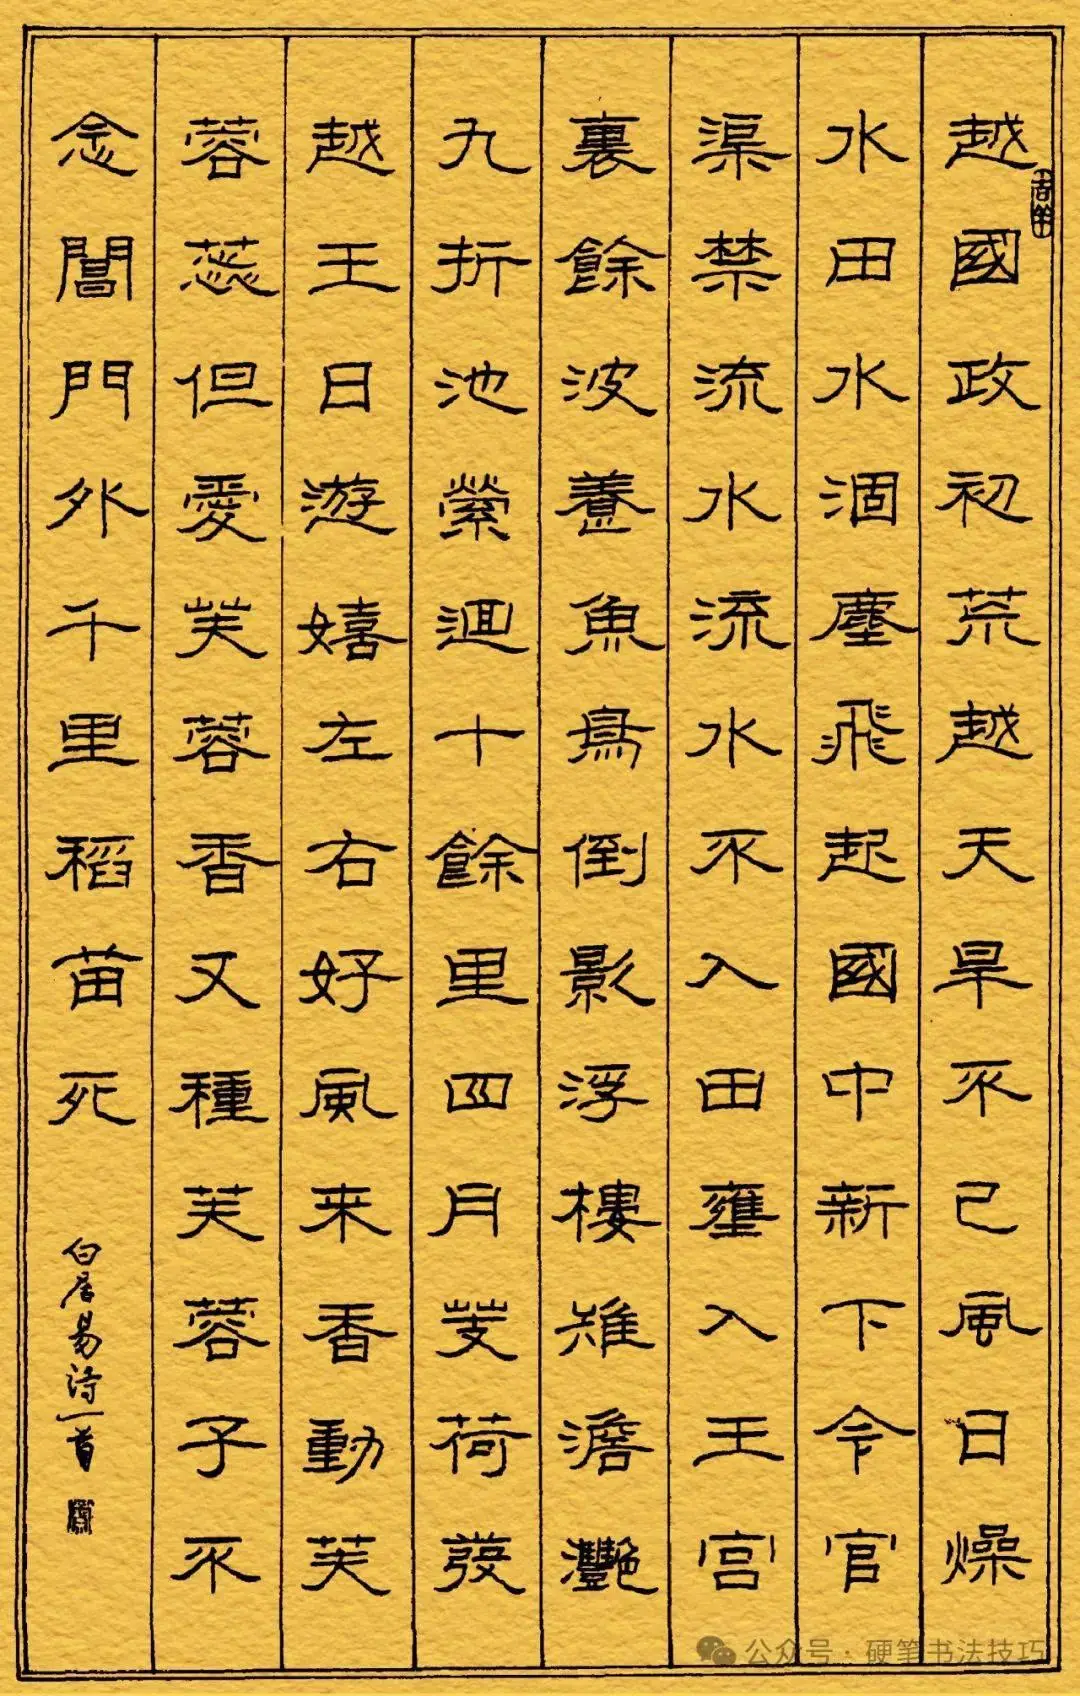 越國政初荒越天旱不已風日燥
水田水涸塵飛起國中新下令官
渠禁流水流水不入田壅入王宫
裏餘波養魚鳥倒影浮樓雉澹灩
九折池縈迴十餘里四月芰荷發
越王日遊嬉左右好風来香動芙
蓉蕊但愛芙蓉香又種芙蓉子不
念閶門外千里稻苗死
白居易诗一首
公众号·硬笔书法技巧